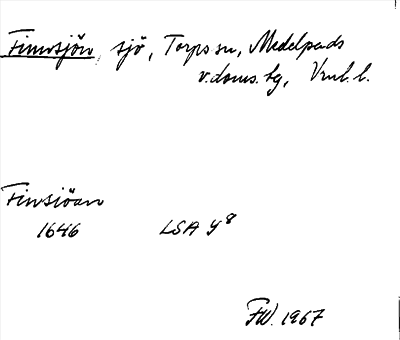 Finnsjön, sjö, Torps sn, Medelpads
v. doms. tg, Vnl. l.
Finsiöan
1646 LSA Y8
FW. 1967